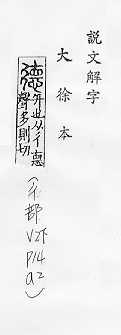 説文解字
大徐本
德 升也从彳悳
聲多則切
(彳部
V2下
P14
a2)